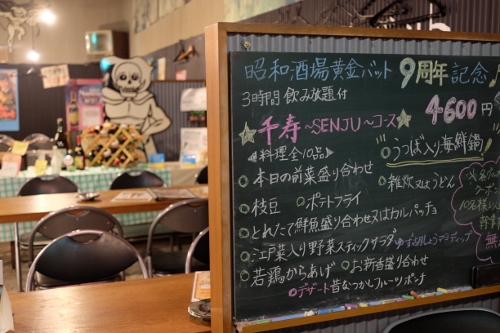 昭和酒場黄金バット 9周年記念
3時間飲み放題付
4600円
☆千寿～SENJU～コース☆
≪料理全10品≫
○本日の前菜盛り合わせ
○うつぼ入り海鮮鍋
○枝豆 ○ポテトフライ
○雑炊又はうどん
○とれたて鮮魚盛り合わせ又はカルパッチョ
○江戸菜入り野菜スティックサラダ
○若鶏からあげ ○お新香盛り合わせ
○デザート昔なつかしフルーツポンチ